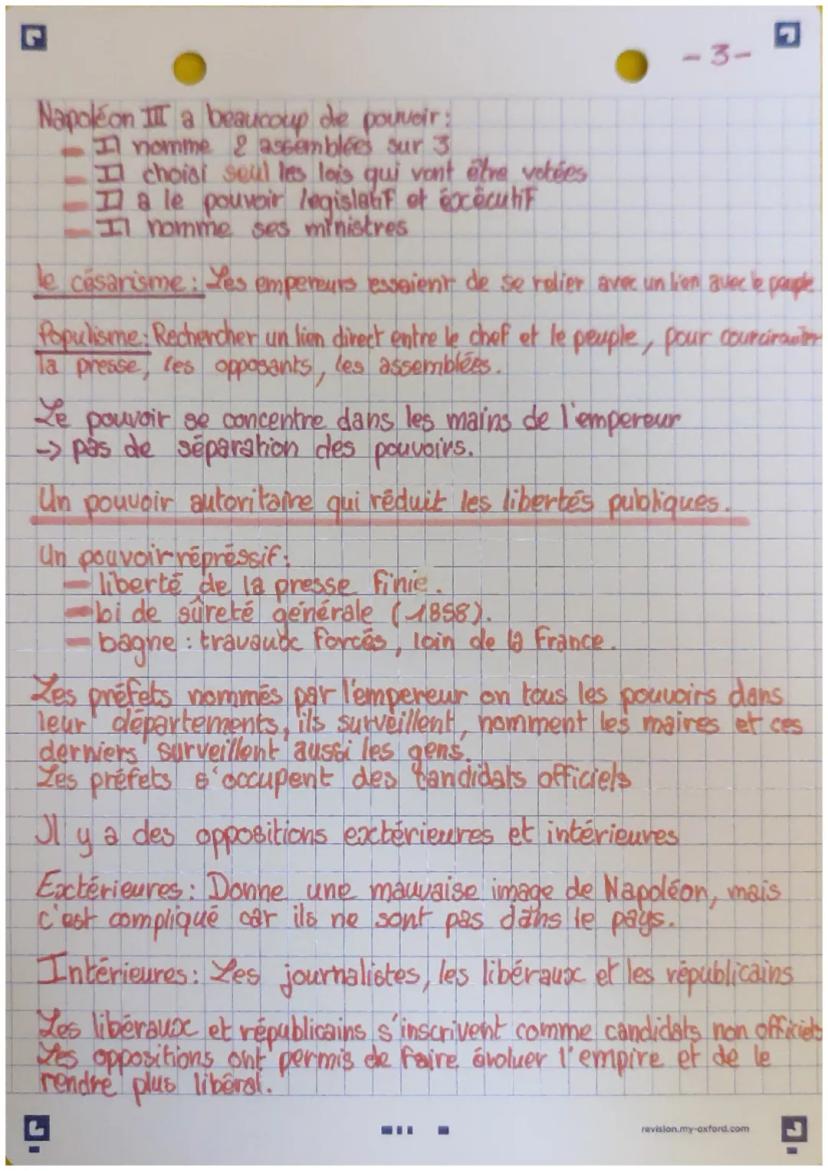 -3-
Napoléon III a beaucoup de pouvoir :
- Il nomme 2 assemblées sur 3
- Il choisi seul les lois qui vont être votées
- Il a le pouvoir legislatif et éxécutif
- Il nomme ses ministres
le césarisme : Les empereurs essaient de se relier avec un lien avec le peuple
Populisme : Rechercher un lien direct entre le chef et le peuple, pour
la presse, les opposants, les assemblées.
Le pouvoir se concentre dans les mains de l'empereur
-> pas de séparation des pouvoirs.
Un pouvoir autoritaire qui réduit les libertés publiques.
Un pouvoir répréssif :
- liberté de la presse finie.
- loi de sûreté générale (1858).
- bagne : travaux forcés, loin de la France.
Les préfets nommés par l'empereur on tous les pouvoirs dans
leur départements, ils surveillent, nomment les maires et ces
derniers surveillent aussi les gens.
Les préfets s'occupent des candidats officiels
Il y a des oppositions extérieures et intérieures
Extérieures : Donne une mauvaise image de Napoléon, mais
c'est compliqué car ils ne sont pas dans le pays.
Intérieures : Les journalistes, les libéraux et les républicains
Les libéraux et républicains s'inscrivent comme candidats non officiels
Les oppositions ont permis de faire évoluer l'empire et de le
rendre plus libéral.
revision.my-oxford.com